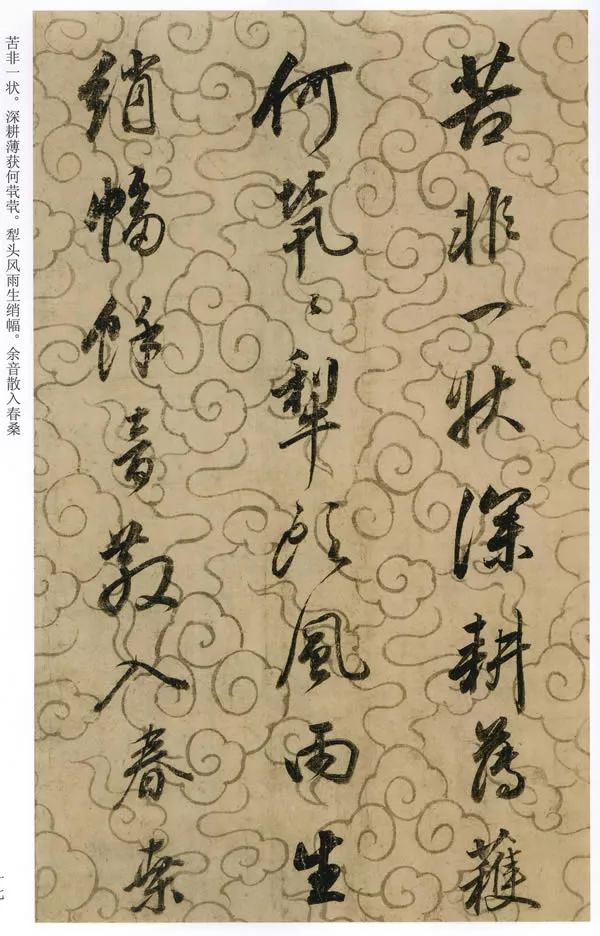 苦非一状深耕薄穫
何茕〻犁頭風雨生
綃幅餘音散入春桑
苦非一状。深耕薄获何茕茕。犁头风雨生绡幅。余音散入春桑
一七